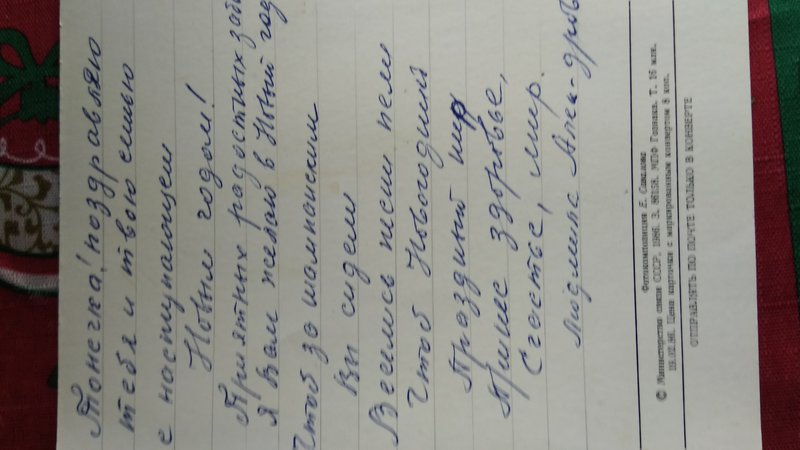 Тонечка! поздравляю
тебя и твою семью
с наступающем
Новым годом!
Приятных радостных
Я Вам желаю в Новый год
Чтоб за шампанским
Вы сидели
Веселись песни пели
Чтоб Новогодний
Праздный пир
Принес здоровье,
Счастье, мир.
Людмила
Фотокомпозиция Е. Савалова
© Министерство связи СССР, 1986. З. 86158. МПФ Гознака. Т. 16 млн.
19.02.86. Цена карточки с маркированным конвертом 8 коп.
ОТПРАВЛЯТЬ ПО ПОЧТЕ ТОЛЬКО В КОНВЕРТЕ